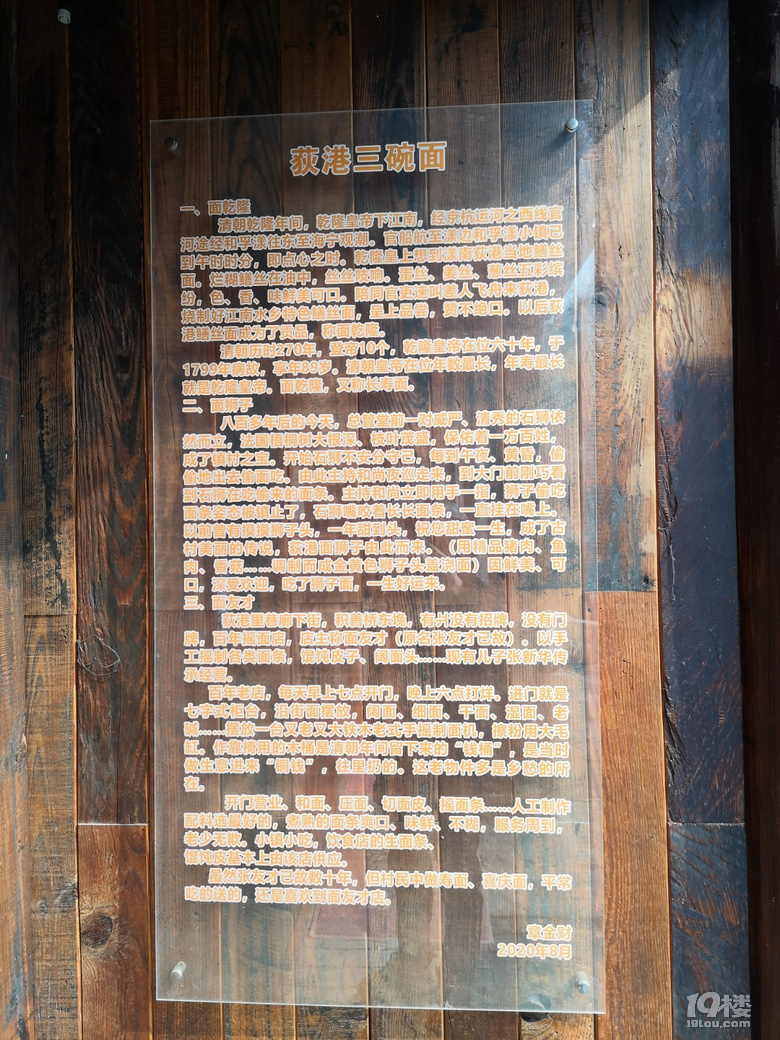 荻港三碗面
一、面乾隆
清朝乾隆年间，乾隆皇帝下江南，经京杭运河之西线官
河途经和孚漾往东至海宁观潮。官船航至漾边和孚漾小镇已
到午时时分，即点心之时。乾隆皇上想到湖南荻港当地鳝丝
面。烂糊鳝丝在油中，丝丝
蛋丝、姜丝、葱丝五彩缤
纷，色、香、味鲜美可口。陪同官
叫差人飞舟来荻港，
烧制好江南水乡特色鳝丝面，呈上品尝，赞不绝口。以后荻
港鳝丝面成为了贡品，称面乾隆。
清朝历时270年，登帝10个，乾隆皇帝在位六十年，于
1799年病故，享年89岁。清朝皇帝在位年数最长，年寿最长
就是乾隆皇帝。面乾隆，又称长寿面。
二、面狮子
八百多年后的今天，总管堂前一对威严、清秀的石狮依
然而立，法国梧桐树大根深、枝叶茂盛，保佑着一方百姓，
成了镇村之宝。开始石狮不安分守己，每到午夜、黄昏，偷
偷地出去偷面吃。由此主持和尚夜巡走来，到大门前刚巧看
到石狮在吃偷来的面条。主持和尚立即用手一指，狮子偷吃
面条姿态被镇止了，石狮嘴咬着长长面条，一直挂在嘴上。
以前曾有
狮子头，一年甜到头，祝您甜蜜一生，成了古
村美丽的传说，荻港面狮子由此而来。（用精品猪肉、鱼
肉、香菇……调制而成金黄色狮子头盖浇面）因鲜美、可
口，深受欢迎，吃了狮子面，一生好运来。
三、面友才
荻港里巷廊下街，积善桥东堍，有爿没有招牌，没有门
牌，百年摇面店，店主称面友才（原名张友才已故）。以手
工摇制各类面条，馄饨皮子、阔面头……现有儿子张新华传
承经营。
百年老店，每天早上七点开门，晚上六点打烊。进门就是
七字式柜台，沿街面摆放，阔面、细面、干面、湿面、老
碱……摆放一台又老又大铁木老式手摇制面机，擦粉用大毛
缸。作靠椅用的木桶是清朝年间留下来的“钱桶”，是当时
做生意进来“铜钱”，往里扔的。这老物件多是乡愁的所
在。
开门营业、和面、压面、切面皮、摇面条……人工制作
配料选最好的，煮熟的面条爽口、味鲜、不糊，服务周到，
老少无欺。小镇小吃，饮食店的生面条、
馄饨皮基本上由该店供应。
虽然张友才已故数十年，但村民中做寿面、喜庆面，平常
吃的送的，还是喜欢到面友才店。
章金财
2020年8月
19楼
19lou.com